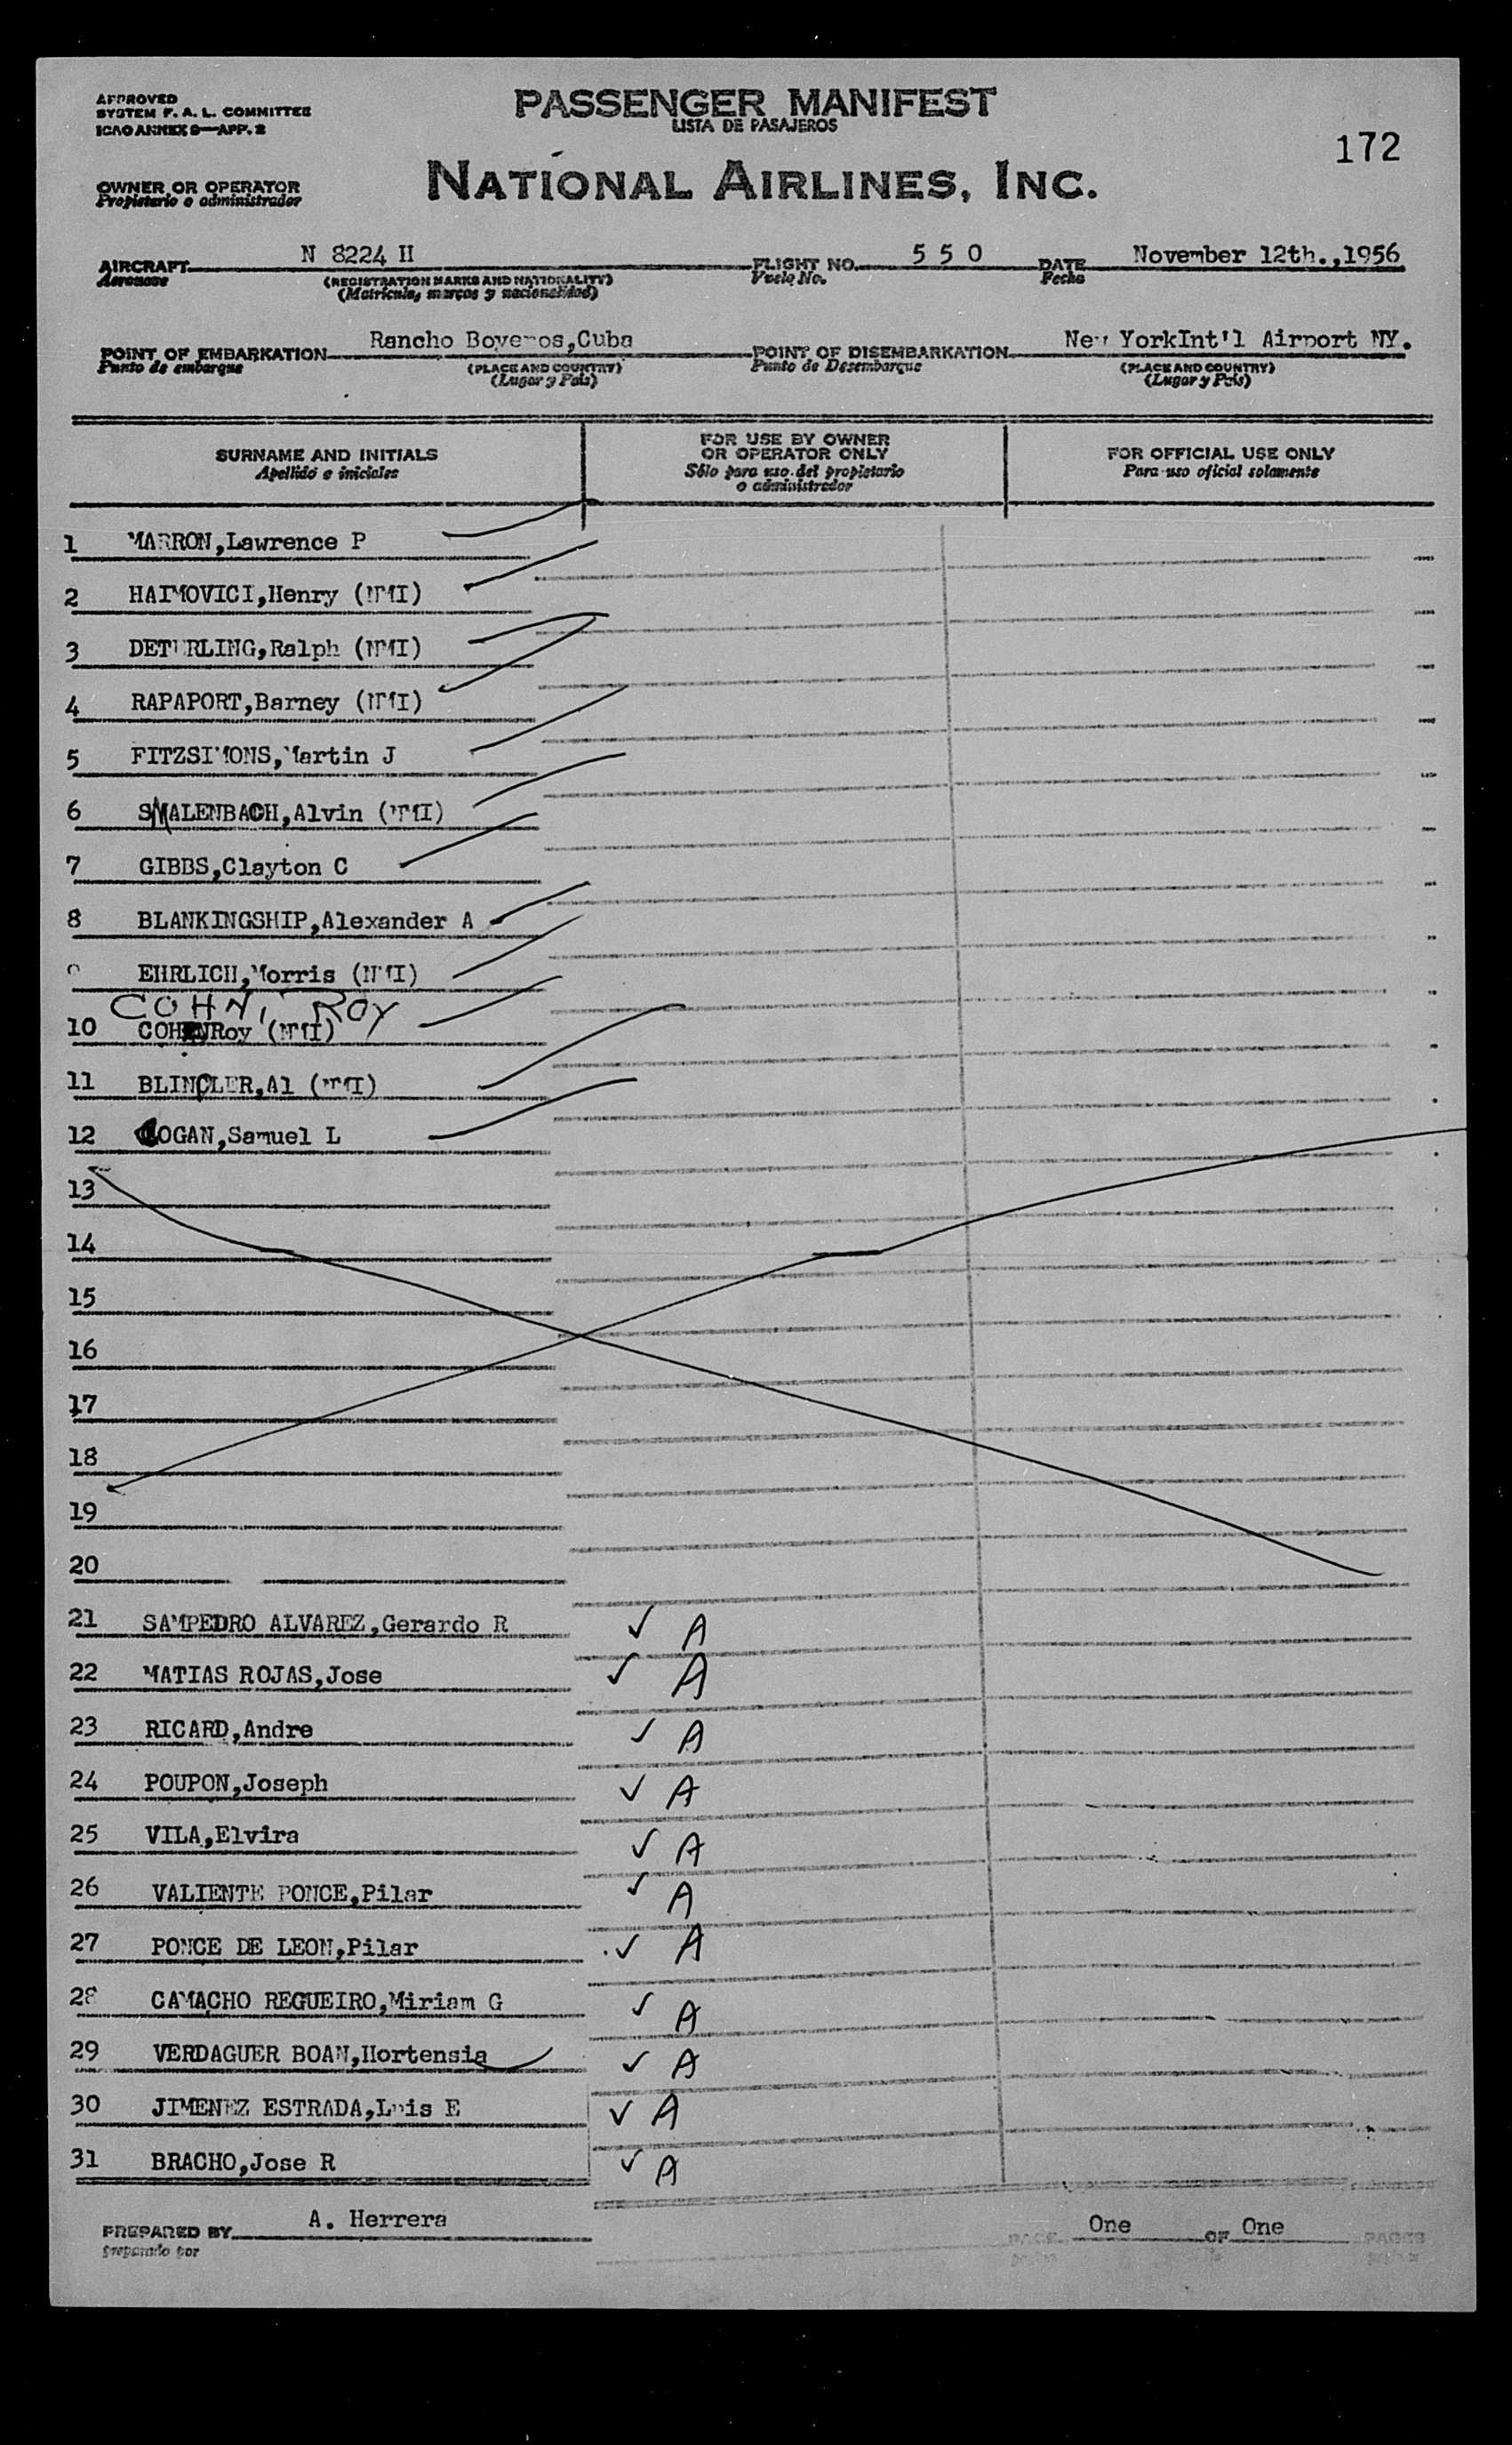 APPROVED
SYSTEM F. A. L. COMMITTEE
ICAO ANNEX 9—APP. 2
PASSENGER MANIFEST
LISTA DE PASAJEROS
172
OWNER OR OPERATOR
Propietario o administrador
NATIONAL AIRLINES, INC.
AIRCRAFT N 8224 H FLIGHT NO. 5 5 0 DATE November 12th.,1956
Aeronave (REGISTRATION MARKS AND NATIONALITY) Vuelo No. Fecha
(Matrícula, marcas y nacionalidad)
POINT OF EMBARKATION Rancho Boyeros,Cuba POINT OF DISEMBARKATION New YorkInt'l Airport NY.
Punto de embarque (PLACE AND COUNTRY) Punto de Desembarque (PLACE AND COUNTRY)
(Lugar y País) (Lugar y País)
SURNAME AND INITIALS
Apellido e iniciales
FOR USE BY OWNER
OR OPERATOR ONLY
Sólo para uso del propietario
o administrador
FOR OFFICIAL USE ONLY
Para uso oficial solamente
1 MARRON,Lawrence P
2 HAIMOVICI,Henry (NMI)
3 DETERLING,Ralph (NMI)
4 RAPAPORT,Barney (NMI)
5 FITZSIMONS,Martin J
6 SMALENBACH,Alvin (NMI)
7 GIBBS,Clayton C
8 BLANKINGSHIP,Alexander A
9 EHRLICH,Morris (NMI)
COHN, ROY
10 COHENRoy (NMI)
11 Al (NMI)
12 Samuel L
13
14
15
16
17
18
19
20
21 SAMPEDRO ALVAREZ,Gerardo R ✓ A
22 MATIAS ROJAS,Jose ✓ A
23 RICARD,Andre ✓ A
24 POUPON,Joseph ✓ A
25 VILA,Elvira ✓ A
26 VALIENTE PONCE,Pilar ✓ A
27 PONCE DE LEON,Pilar ✓ A
28 CAMACHO REGUEIRO,Miriam G ✓ A
29 VERDAGUER BOAN,Hortensia ✓ A
30 JIMENEZ ESTRADA,Luis E ✓ A
31 BRACHO,Jose R ✓ A
PREPARED BY A. Herrera PAGE One OF One PAGES
preparado por